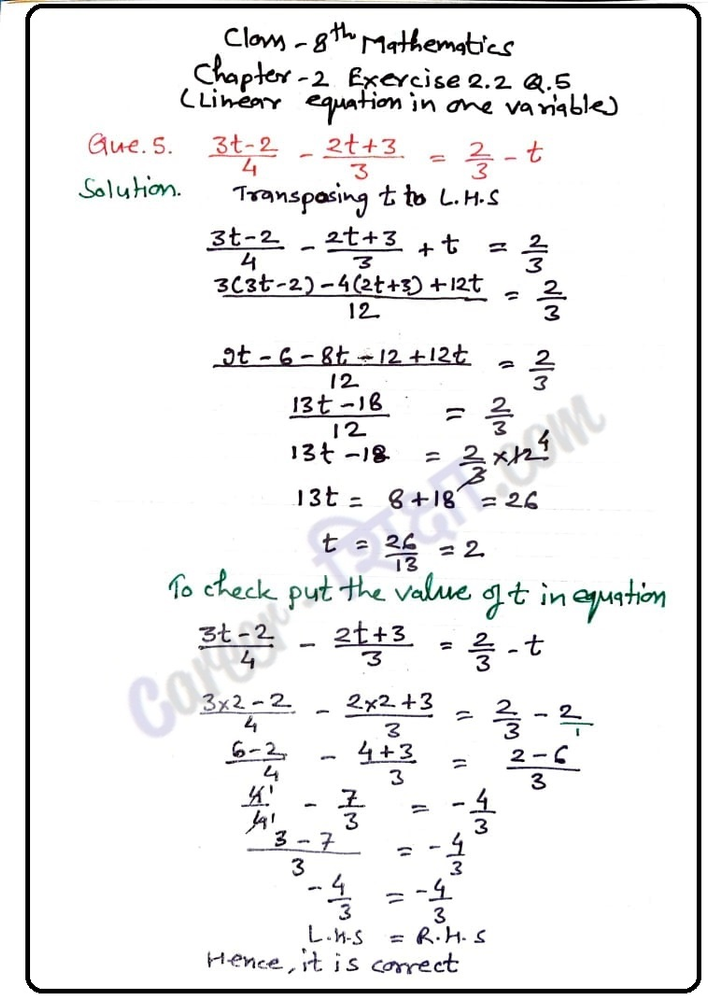 Class - 8th Mathematics
Chapter - 2 Exercise 2.2 Q.5
(Linear equation in one variable)
Que. 5. (3t-2)/4 - (2t+3)/3 = 2/3 - t
Solution. Transposing t to L.H.S
(3t-2)/4 - (2t+3)/3 + t = 2/3
(3(3t-2) - 4(2t+3) + 12t)/12 = 2/3
(9t - 6 - 8t - 12 + 12t)/12 = 2/3
(13t - 18)/12 = 2/3
13t - 18 = 2/3 × 12 4
13t = 8 + 18 = 26
t = 26/13 = 2
To check put the value of t in equation
(3t-2)/4 - (2t+3)/3 = 2/3 - t
(3×2-2)/4 - (2×2+3)/3 = 2/3 - 2/1
(6-2)/4 - (4+3)/3 = (2-6)/3
4 1/4 1 - 7/3 = -4/3
(3-7)/3 = -4/3
-4/3 = -4/3
L.H.S = R.H.S
Hence, it is correct
Career - शिक्षा.com